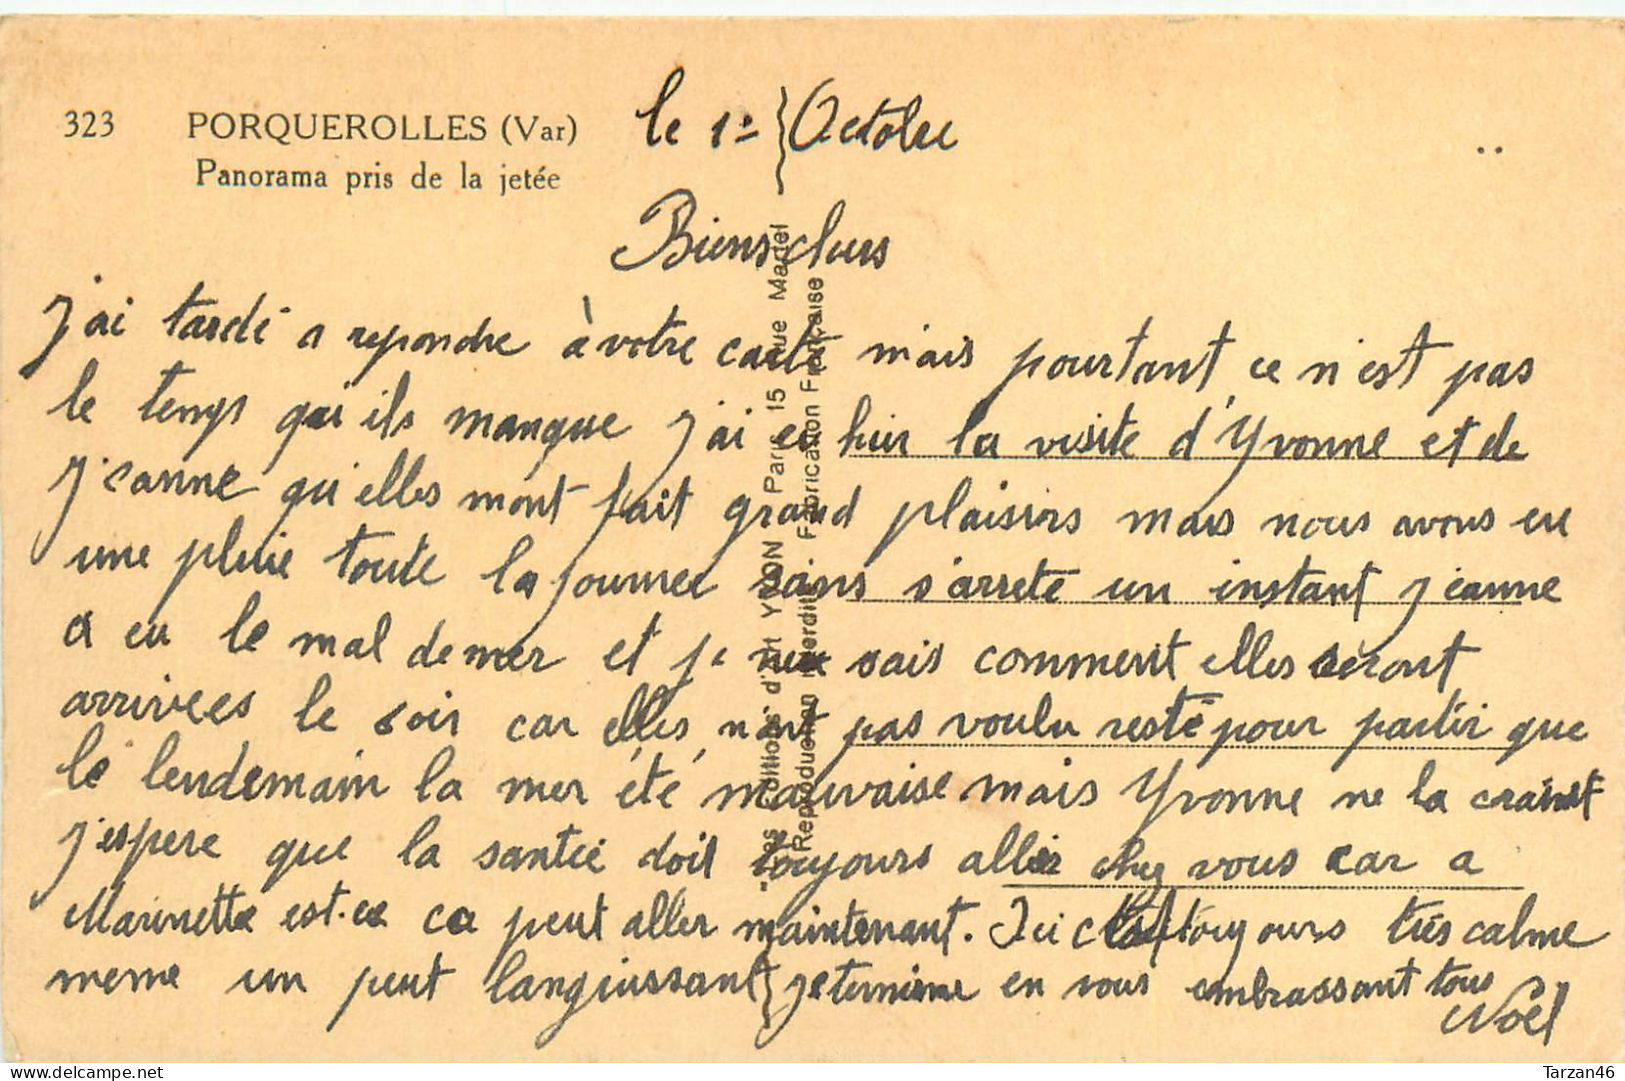 323 PORQUEROLLES (Var)
Panorama pris de la jetée
le 1e Octobre
Biens chers
j'ai tardé a repondre à votre carte mais pourtant ce n'est pas
le temps qui ils manque j'ai eu hier la visite d'Yvonne et de
jeanne qu'elles mont fait grand plaisirs mais nous avons eu
une pluie toute la journee sans s'arrete un instant jeanne
a eu le mal de mer et je ne sais comment elles seront
arrivees le soir car elles n'ont pas voulu resté pour partir que
le lendemain la mer été mauvaise mais Yvonne ne la craint
j'espere que la santée doit toujours aller chez vous car a
Marinette est-ce ca peut aller maintenant. Ici c'est toujours très calme
meme un peut languissant je termine en vous embrassant tous
Noël
Les Editions d'Art YVON Paris 15 rue Martel
Reproduction interdite Fabrication Française
Tarzan46
delcampe.net